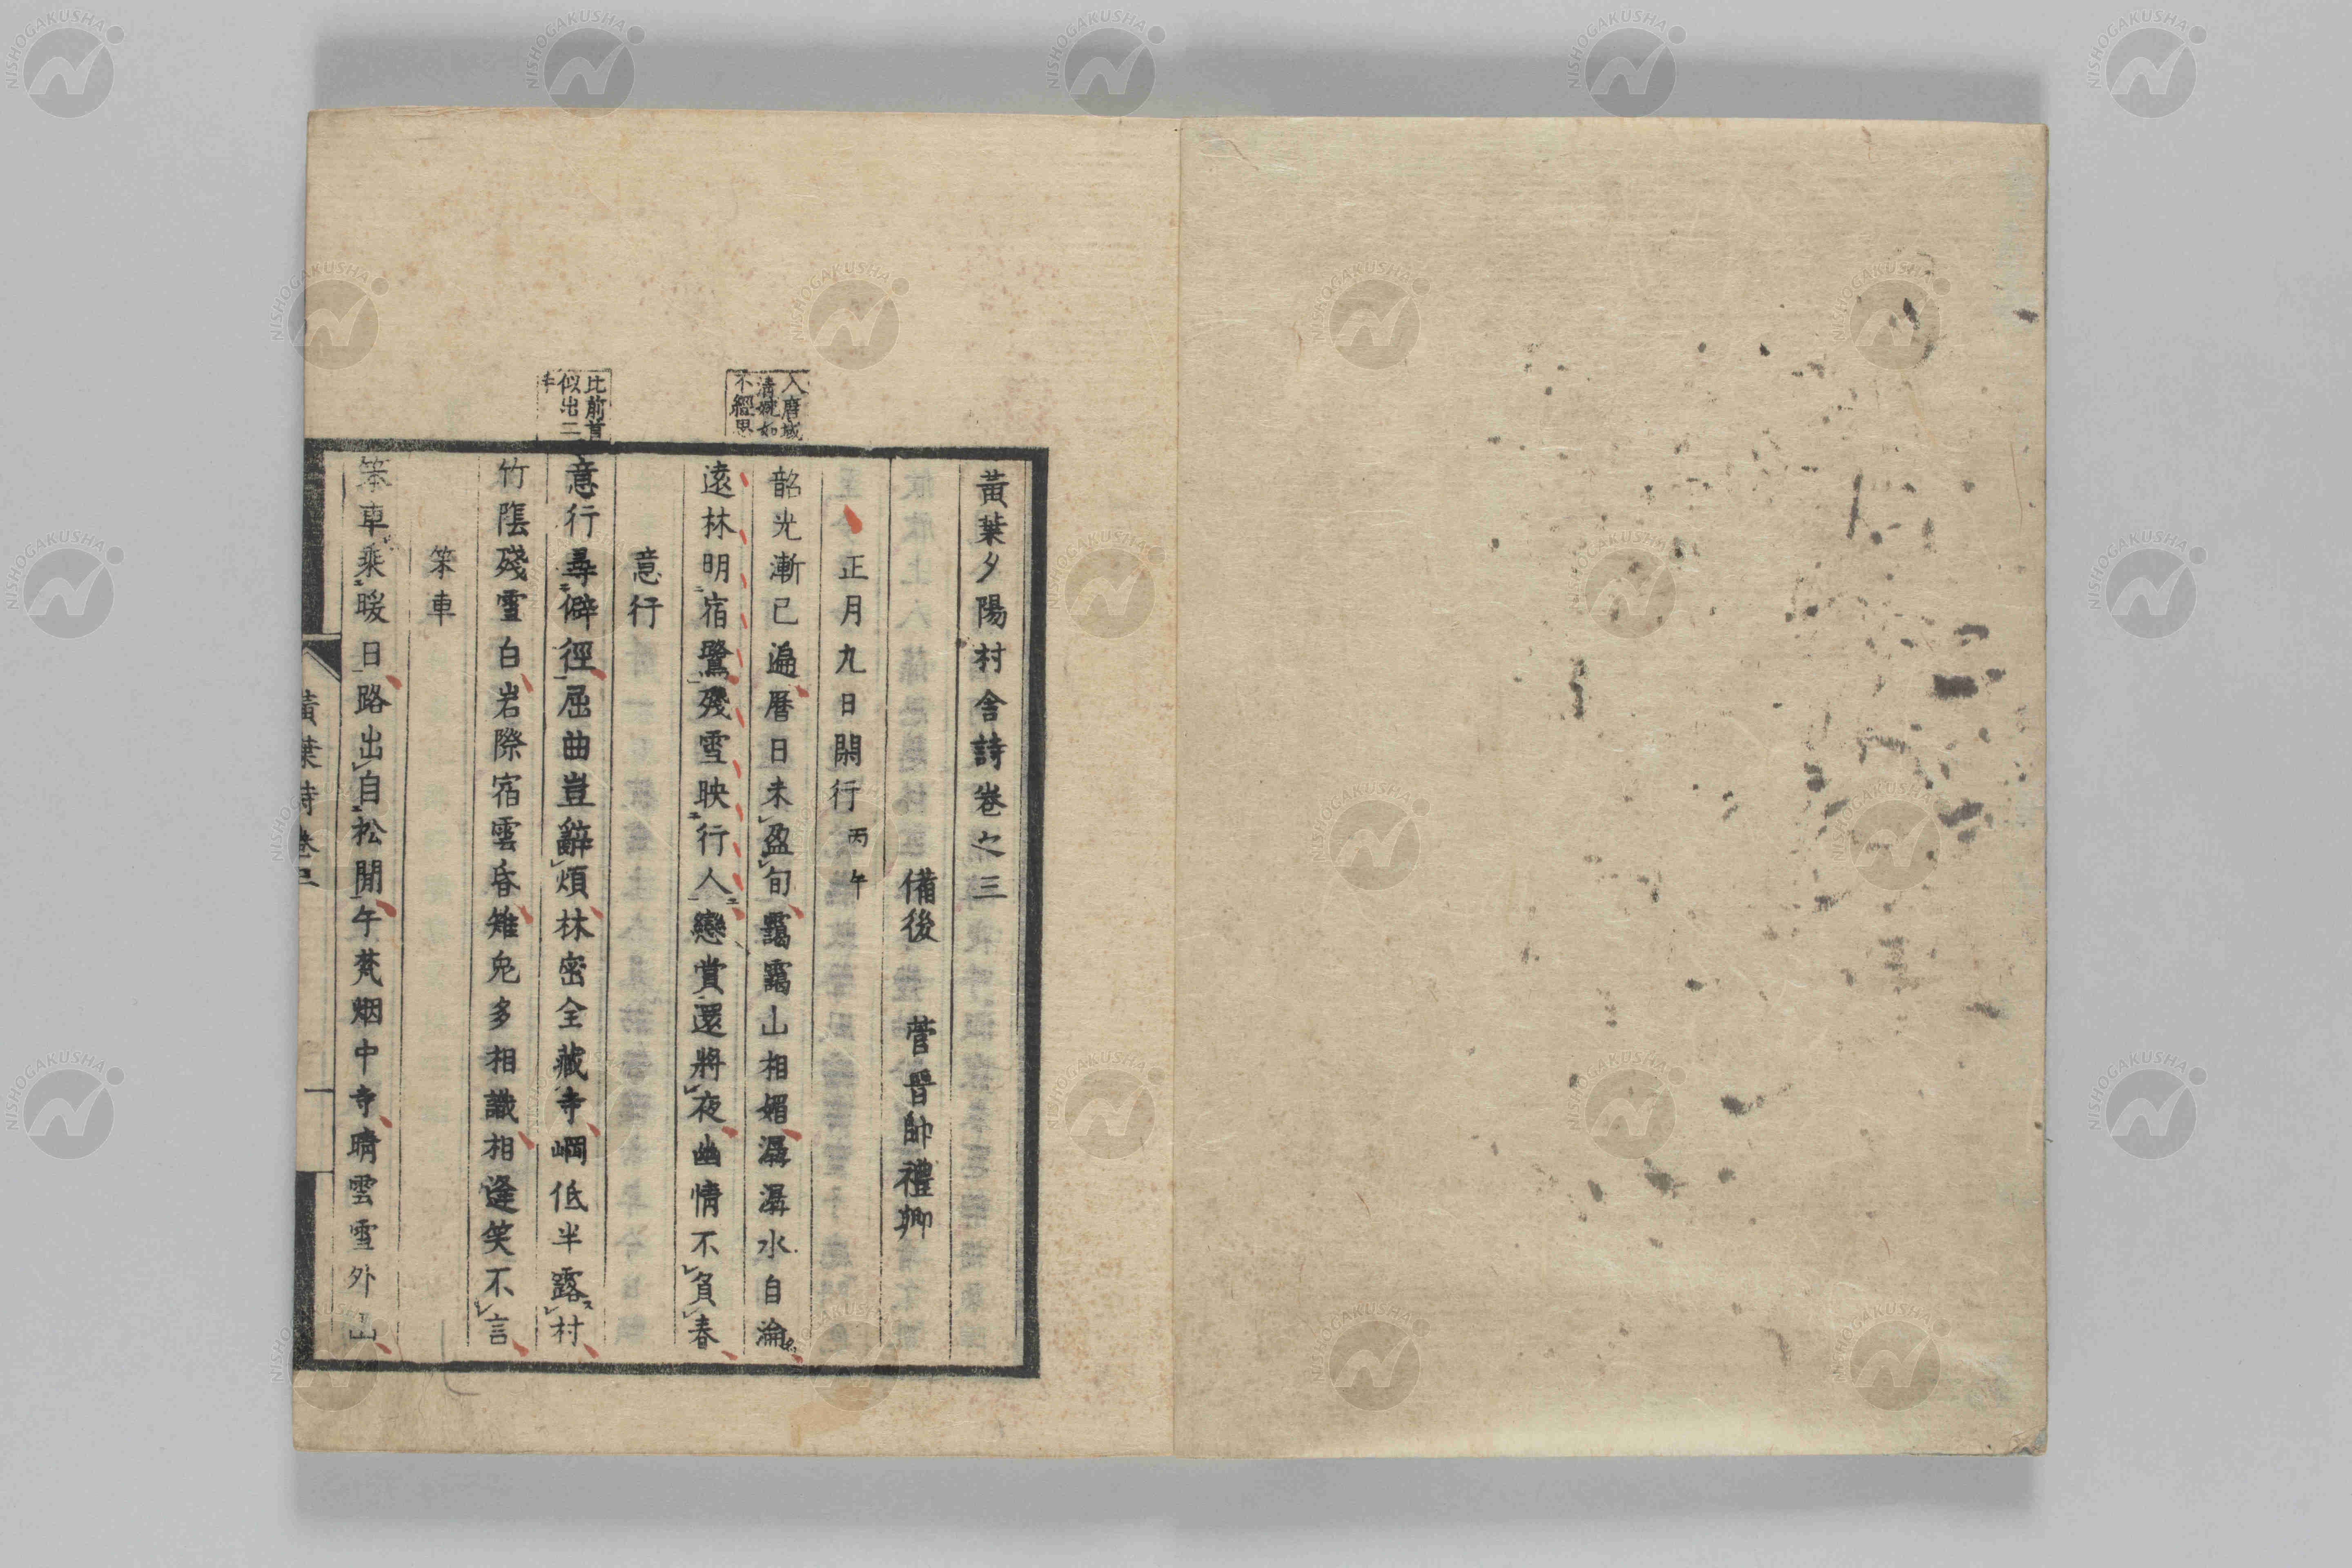 黃葉夕陽村舍詩卷之三
備後　菅晋帥禮卿
正月九日閑行丙午
入唐域
清婉如
不經思
韶光漸已遍曆日未盈旬靄靄山相媚潺潺水自淪
遠林明宿鷺殘雪映行人戀賞還將夜幽情不負春
意行
比前首
似出二
手
意行尋僻徑屈曲豈辭煩林密全藏寺岡低半露村
竹陰殘雪白岩際宿雲昏雉兔多相識相逢笑不言
笨車
笨車乘暖日路出自松間午梵烟中寺晴雲雪外山
黃葉詩卷三
一
NISHOGAKUSHA